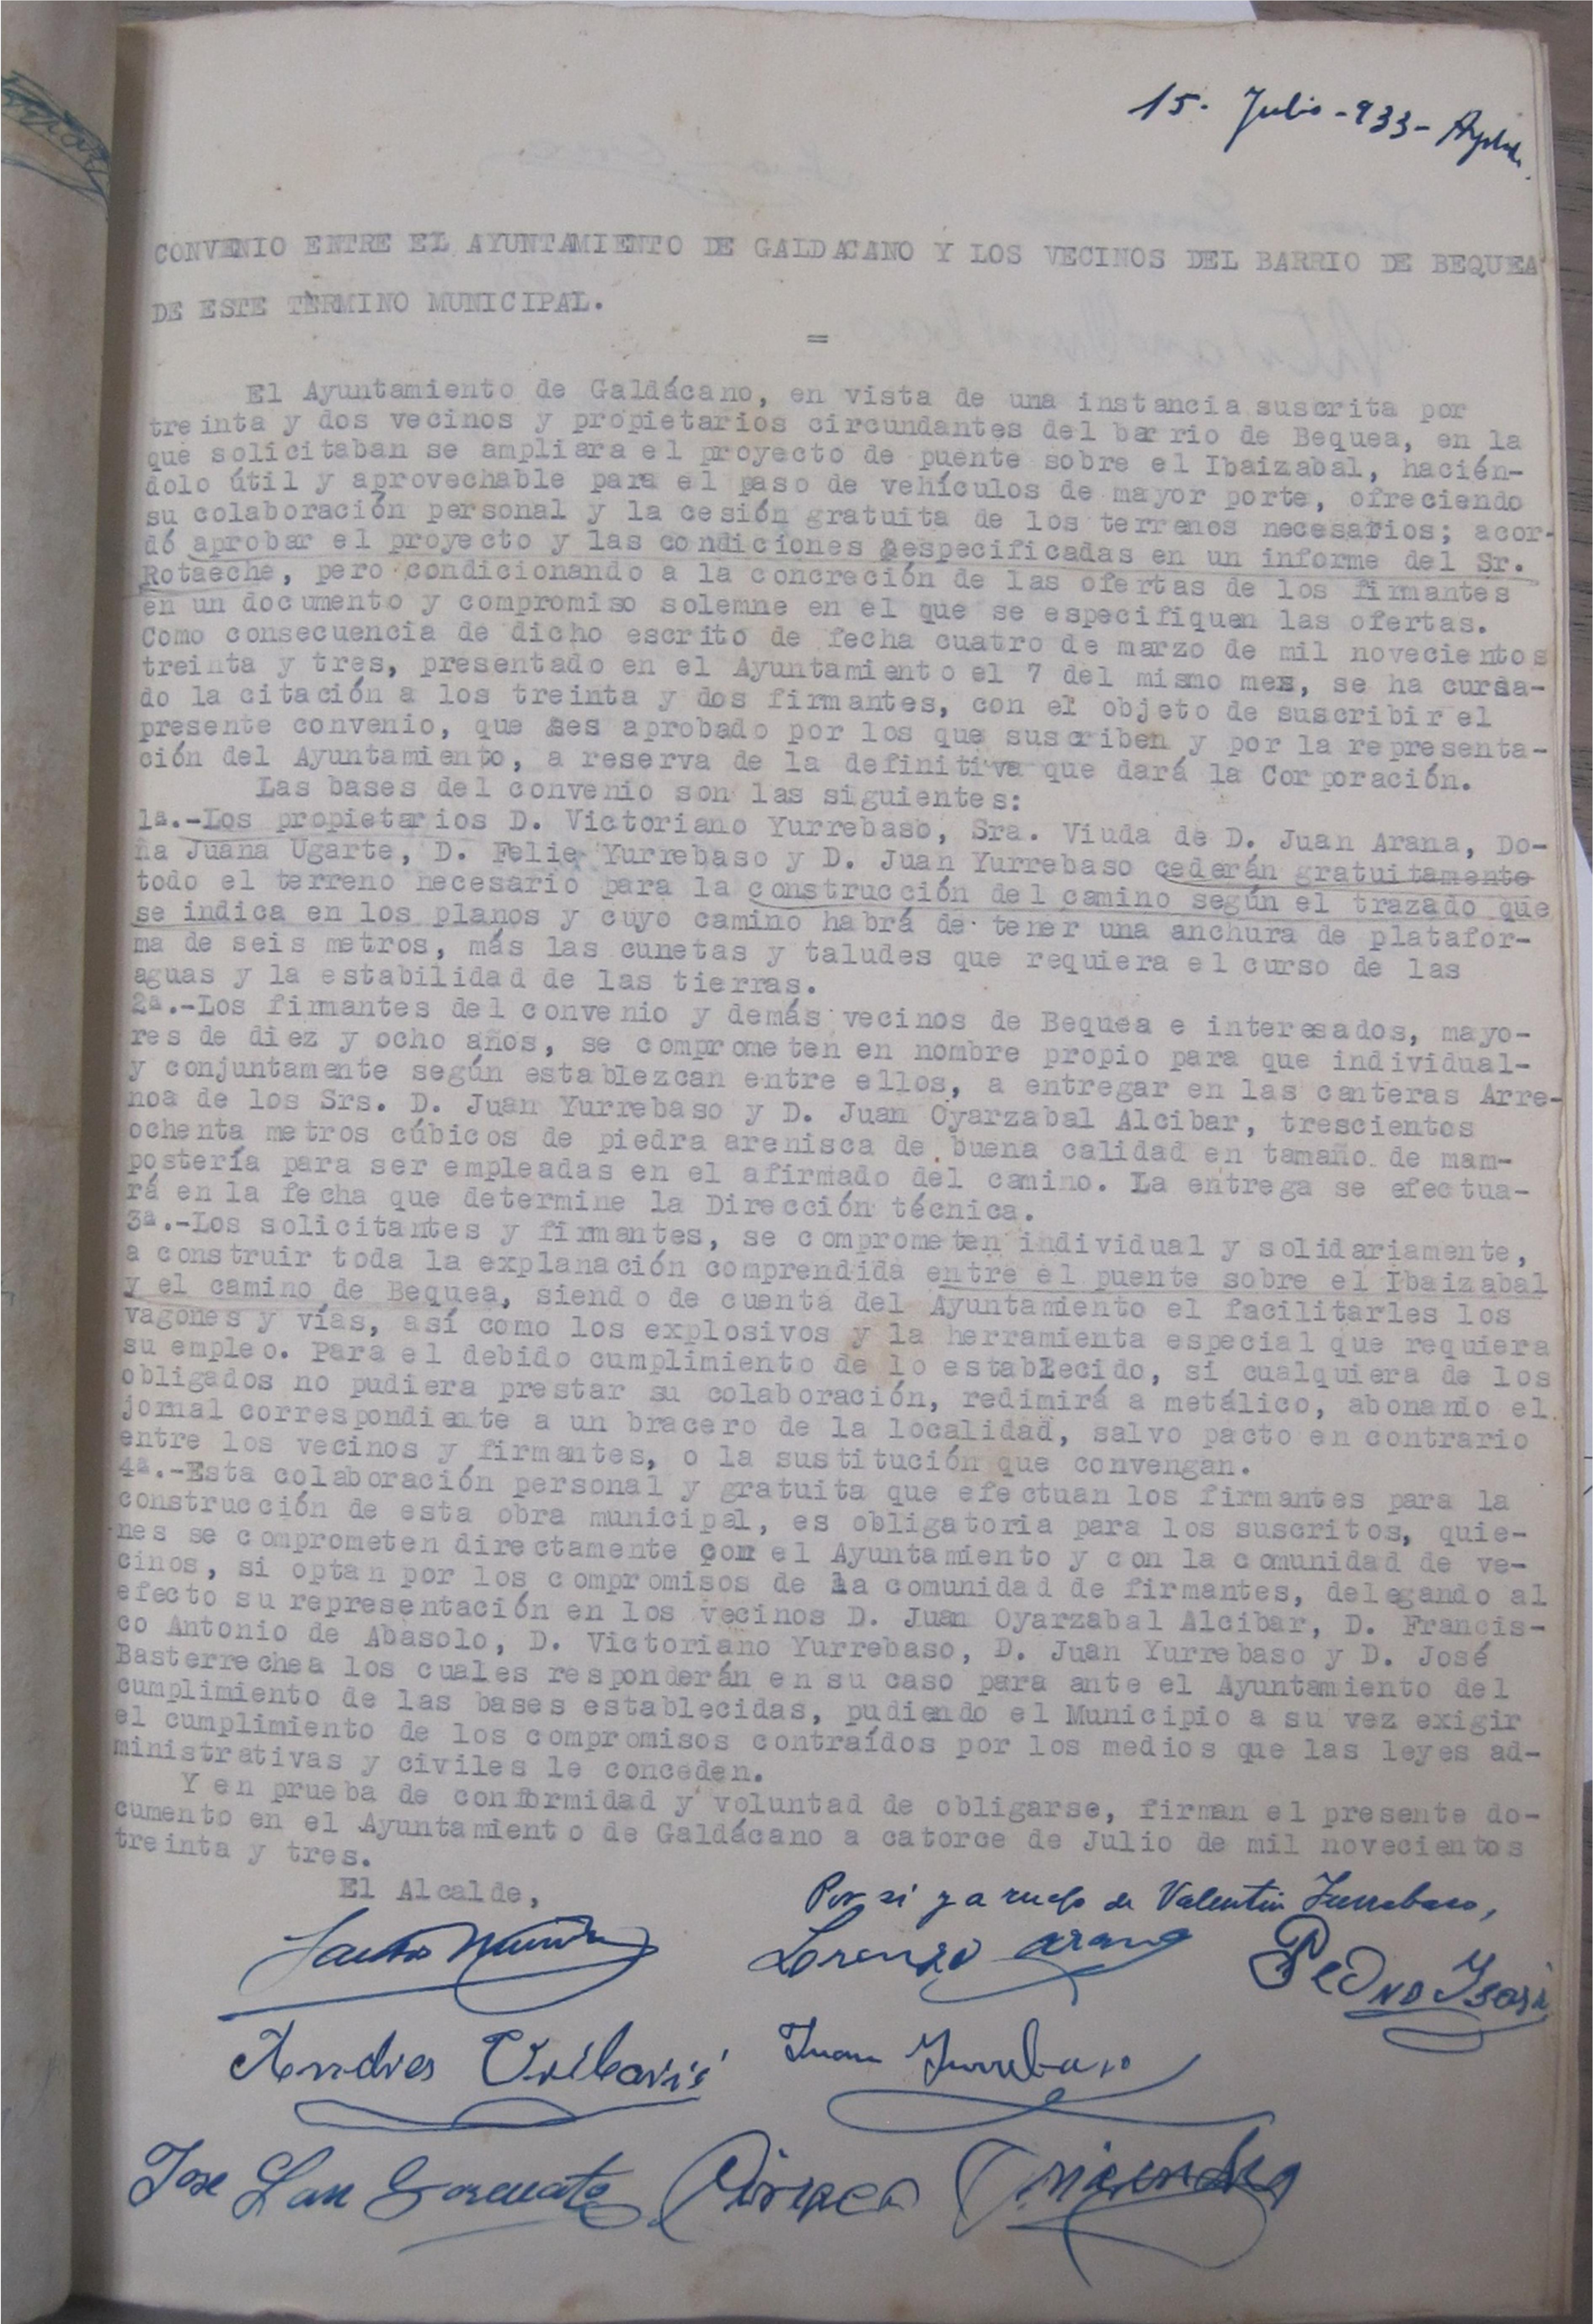 15. Julio - 933 -
CONVENIO ENTRE EL AYUNTAMIENTO DE GALDACANO Y LOS VECINOS DEL BARRIO DE BEQUEA
DE ESTE TÉRMINO MUNICIPAL.
=
El Ayuntamiento de Galdácano, en vista de una instancia suscrita por
treinta y dos vecinos y propietarios circundantes del barrio de Bequea, en la
que solicitaban se ampliara el proyecto de puente sobre el Ibaizabal, hacién-
dolo útil y aprovechable para el paso de vehículos de mayor porte, ofreciendo
su colaboración personal y la cesión gratuita de los terrenos necesarios; acor-
dó aprobar el proyecto y las condiciones especificadas en un informe del Sr.
Rotaeche, pero condicionando a la concreción de las ofertas de los firmantes
en un documento y compromiso solemne en el que se especifiquen las ofertas.
Como consecuencia de dicho escrito de fecha cuatro de marzo de mil novecientos
treinta y tres, presentado en el Ayuntamiento el 7 del mismo mes, se ha cursa-
do la citación a los treinta y dos firmantes, con el objeto de suscribir el
presente convenio, que es aprobado por los que suscriben y por la representa-
ción del Ayuntamiento, a reserva de la definitiva que dará la Corporación.
Las bases del convenio son las siguientes:
1ª.-Los propietarios D. Victoriano Yurrebaso, Sra. Viuda de D. Juan Arana, Do-
ña Juana Ugarte, D. Felie Yurrebaso y D. Juan Yurrebaso cederán gratuitamente
todo el terreno necesario para la construcción del camino según el trazado que
se indica en los planos y cuyo camino habrá de tener una anchura de platafor-
ma de seis metros, más las cunetas y taludes que requiera el curso de las
aguas y la estabilidad de las tierras.
2ª.-Los firmantes del convenio y demás vecinos de Bequea e interesados, mayo-
res de diez y ocho años, se comprometen en nombre propio para que individual-
y conjuntamente según establezcan entre ellos, a entregar en las canteras Arre-
noa de los Srs. D. Juan Yurrebaso y D. Juan Oyarzabal Alcibar, trescientos
ochenta metros cúbicos de piedra arenisca de buena calidad en tamaño de mam-
postería para ser empleadas en el afirmado del camino. La entrega se efectua-
rá en la fecha que determine la Dirección técnica.
3ª.-Los solicitantes y firmantes, se comprometen individual y solidariamente,
a construir toda la explanación comprendida entre el puente sobre el Ibaizabal
y el camino de Bequea, siendo de cuenta del Ayuntamiento el facilitarles los
vagones y vías, así como los explosivos y la herramienta especial que requiera
su empleo. Para el debido cumplimiento de lo establecido, si cualquiera de los
obligados no pudiera prestar su colaboración, redimirá a metálico, abonando el
jornal correspondiente a un bracero de la localidad, salvo pacto en contrario
entre los vecinos y firmantes, o la sustitución que convengan.
4ª.-Esta colaboración personal y gratuita que efectuan los firmantes para la
construcción de esta obra municipal, es obligatoria para los suscritos, quie-
nes se comprometen directamente con el Ayuntamiento y con la comunidad de ve-
cinos, si optan por los compromisos de la comunidad de firmantes, delegando al
efecto su representación en los vecinos D. Juan Oyarzabal Alcibar, D. Francis-
co Antonio de Abasolo, D. Victoriano Yurrebaso, D. Juan Yurrebaso y D. José
Basterrechea los cuales responderán en su caso para ante el Ayuntamiento del
cumplimiento de las bases establecidas, pudiendo el Municipio a su vez exigir
el cumplimiento de los compromisos contraídos por los medios que las leyes ad-
ministrativas y civiles le conceden.
Y en prueba de conformidad y voluntad de obligarse, firman el presente do-
cumento en el Ayuntamiento de Galdácano a catorce de Julio de mil novecientos
treinta y tres.
El Alcalde,
Por si y a ruego de Valentin Yurrebaso,
Lorenzo Arana
Pedro Ysasi
Andres Uribarri
Juan Yurrebaso
Jose